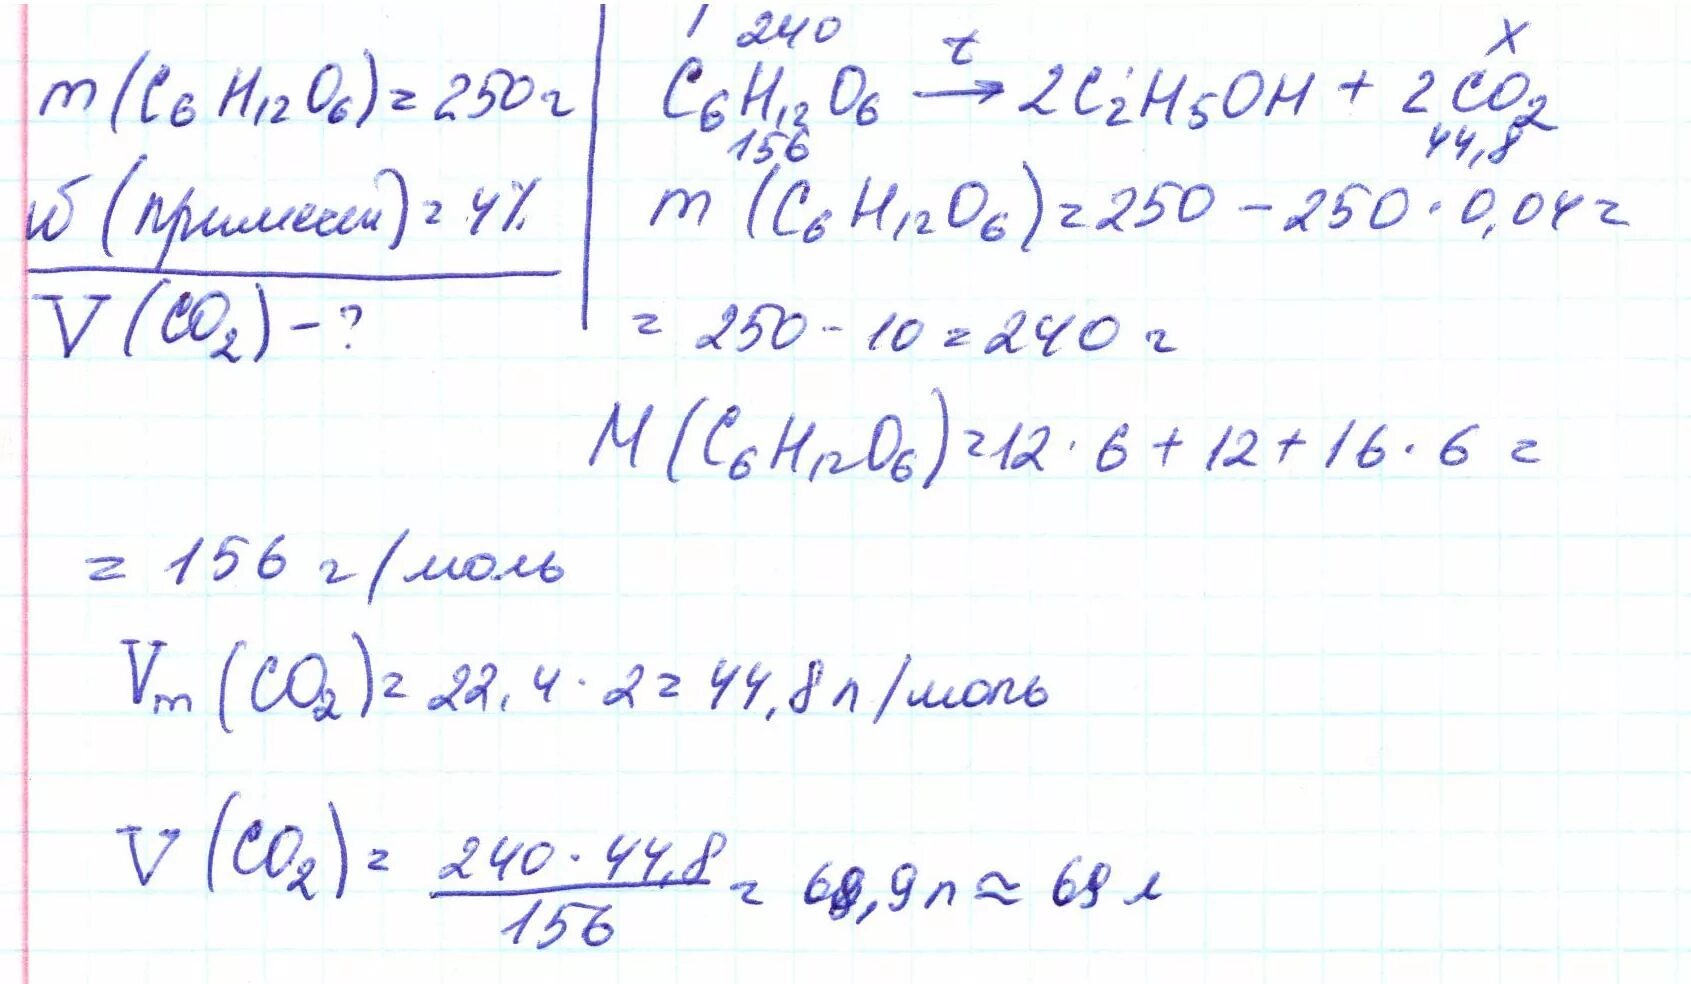 m(C₆H₁₂O₆) = 250 г
ω(примесей) = 4%
V(CO₂) - ?
240 x
C₆H₁₂O₆ →ᵗ 2C₂H₅OH + 2CO₂
156 44,8
m(C₆H₁₂O₆) = 250 - 250 · 0,04 =
= 250 - 10 = 240 г
M(C₆H₁₂O₆) = 12 · 6 + 12 + 16 · 6 =
= 156 г/моль
Vm(CO₂) = 22,4 · 2 = 44,8 л/моль
V(CO₂) = 240 · 44,8 / 156 = 68,9 л ≈ 69 л